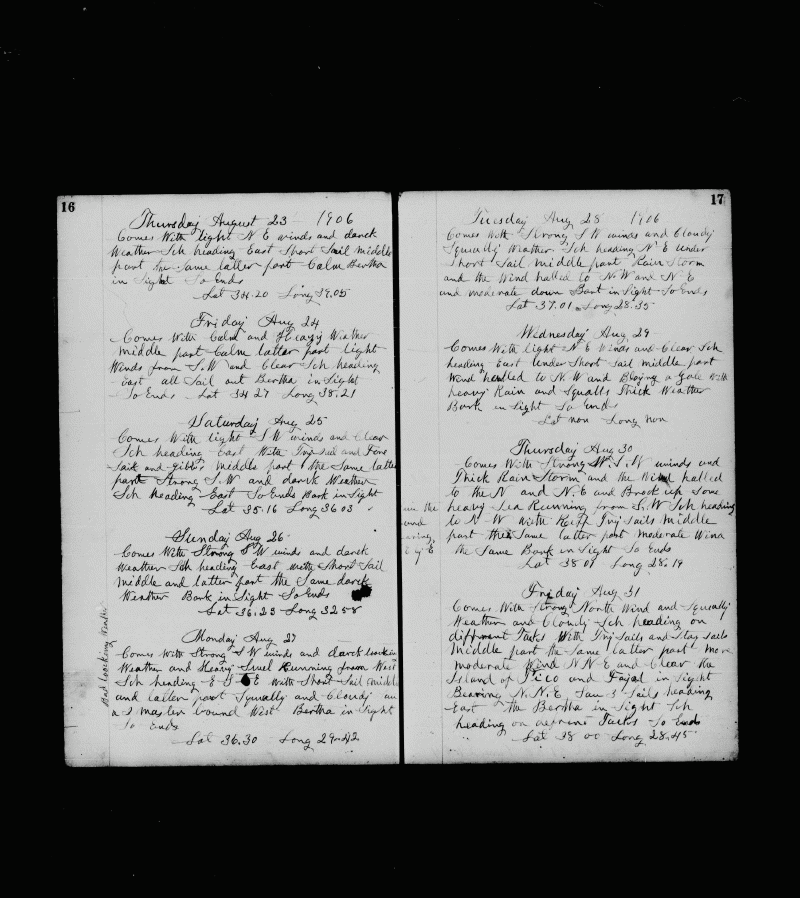 16
Thursday August 23 1906
Comes With light N E winds and darck
Weather Sch heading East Short Sail middle
part the Same latter part Calm Bertha
in Sight So Ends
Lat 34.20 Long 39.05
Friday Aug 24
Comes With Calm and Heavy Weather
middle part Calm latter part light
Winds from S.W and Clear Sch heading
East all Sail out Bertha in Sight
So Ends Lat 34 27 Long 38.21
Saturday Aug 25
Comes With light S W winds and Clear
Sch heading East With Trysail and Fore
Sail and gibbs middle part the Same latter
part Strong S.W and darck Weather
Sch Heading East So Ends Bark in Sight
Lat 35.16 Long 36 03
Sunday Aug 26
Comes With Strong S W winds and darck
Weather Sch heading East with Short Sail
middle and latter part the Same darck
Weather Bark in Sight So Ends
Lat 36.23 Long 32 58
Monday Aug 27
Comes With Strong S W winds and darck looking
Weather and Heavy Swel Running from West
Sch heading E S E With Short Sail middle
and latter part Squally and Cloudy
a 2 master bound West Bertha in Sight
So Ends
Lat 36.30 Long 29.42
Bad looking Weather
17
Tuesday Aug 28 1906
Comes With Strong S W winds and Cloudy
Squally Weather Sch heading N E under
Short Sail middle part Rain Storm
and the Wind halled to N.W and N E
and moderate down Bark in Sight So Ends
Lat 37.01 Long 28.35
Wednesday Aug 29
Comes With light N E Winds and Clear Sch
heading East under Short Sail middle part
Wind halled to N.W and Bloying a Gale With
heavy Rain and Squalls Thick Weather
Bark in Sight So Ends
Lat non Long non
Thursday Aug 30
Comes With Strong W.S.W winds and
Thick Rain Storm and the Wind halled
to the N and N.E and Brock up Some
heavy Sea Running from S.W Sch heading
to N-W with Reff Trysails middle
part the Same latter part moderate Wind
the Same Bark in Sight So Ends
Lat 38 01 Long 28.19
Friday Aug 31
Comes With Strong North Wind and Squally
Weather and Cloudy Sch heading on
different Tacks With Trysails and Stay sails
Middle part the Same latter part more
moderate Wind N N E and Clear the
Island of Pico and Fayal in Sight
Bearing N.N.E. Saw 3 Sails heading
East the Bertha in Sight Sch
heading on Tacks So Ends
Lat 38 00 Long 28.45